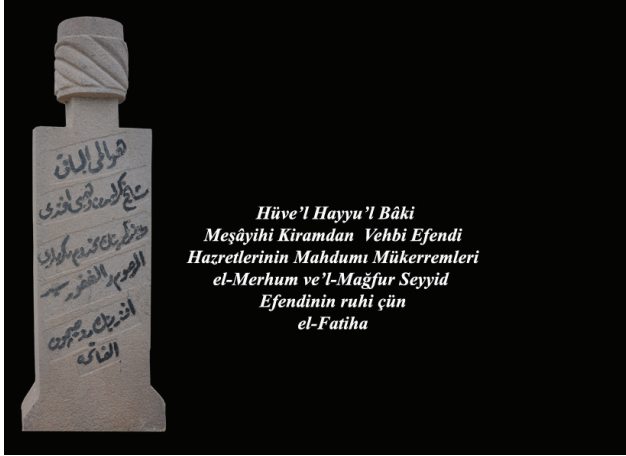 هو الحی الباقی
مشایخ کرامدن وهبی افندی
حضرتلرینك مخدوم مکرملری
المرحوم والمغفور سید
افندینك روحیچون
الفاتحه
Hüve’l Hayyu’l Bâki
Meşâyihi Kiramdan Vehbi Efendi
Hazretlerinin Mahdumı Mükerremleri
el-Merhum ve’l-Mağfur Seyyid
Efendinin ruhi çün
el-Fatiha